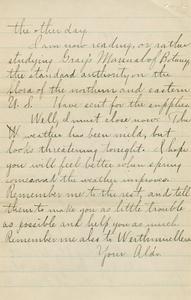 the other day.
I am now reading, or rather
studying Gray's Manual of Botany
the standard authority on the
flora of the northern and eastern
U. S. Have sent for the supplies
Well, I must close now. The
weather has been mild, but
looks threatening tonight. I hope
you will feel better when spring
comes and the weather improves.
Remember me to the rest, and tell
them to make you as little trouble
as possible and help you as much.
Remember me also to Werthmuellers
Your Aldo.